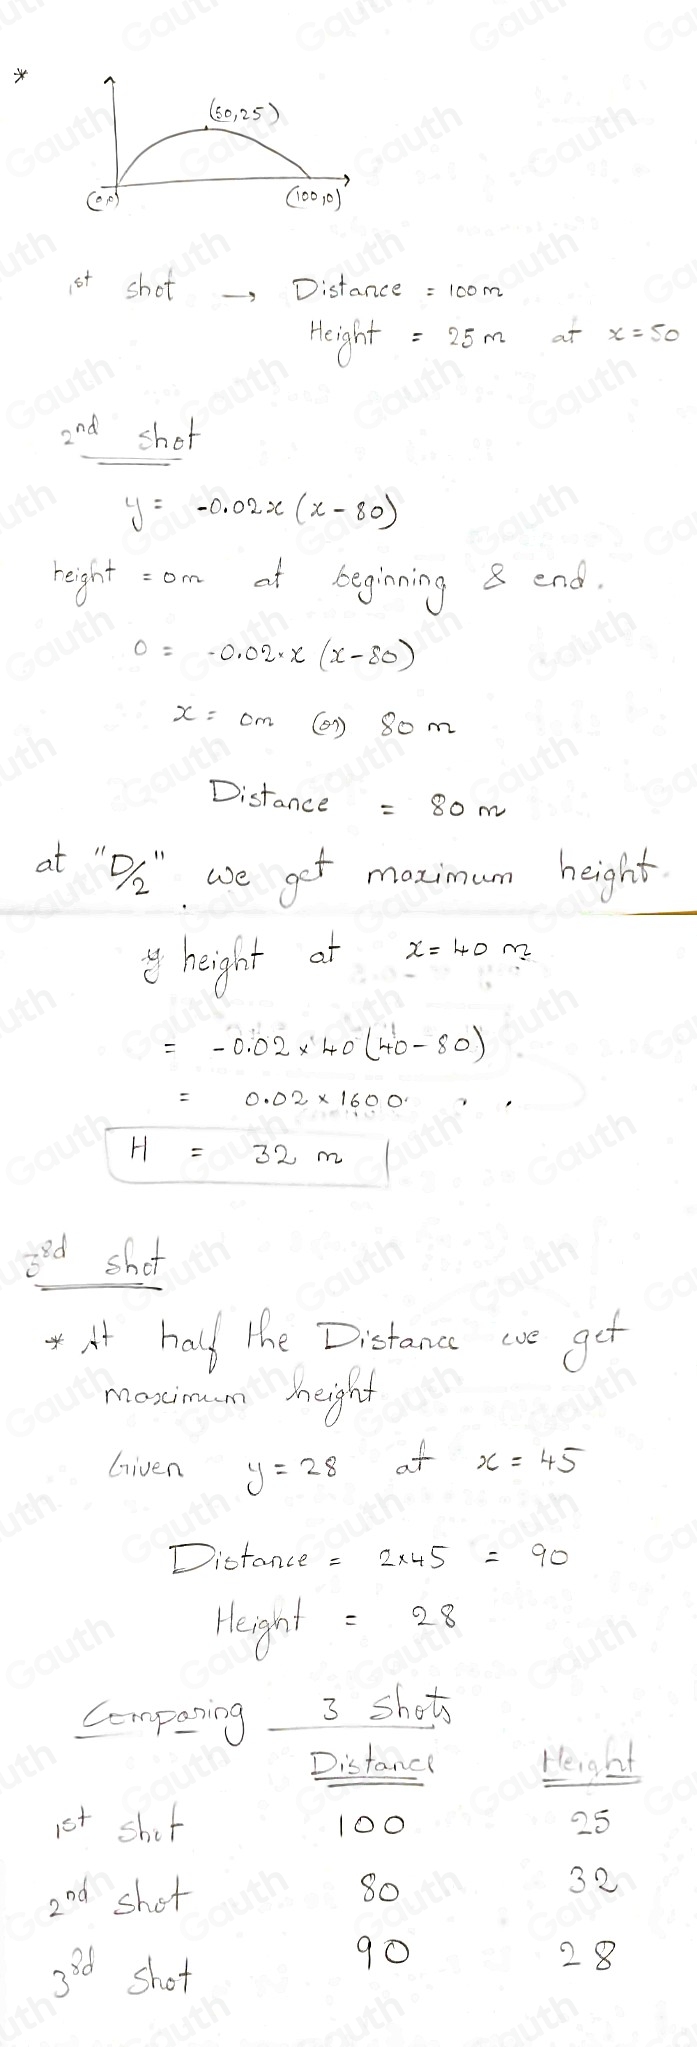 *
(50,25)
(0,0) (100,0)
1st shot → Distance = 100 m
Height = 25 m at x = 50
2nd shot
y = -0.02x (x - 80)
height = 0m at beginning & end.
0 = -0.02·x (x - 80)
x = 0m (or) 80 m
Distance = 80 m
at "D/2" we get maximum height.
y height at x = 40 m
= -0.02 × 40 (40 - 80)
= 0.02 × 1600
H = 32 m
3rd shot
* At half the Distance we get
maximum height
Given y = 28 at x = 45
Distance = 2×45 = 90
Height = 28
Comparing 3 shots
Distance Height
1st shot 100 25
2nd shot 80 32
3rd shot 90 28